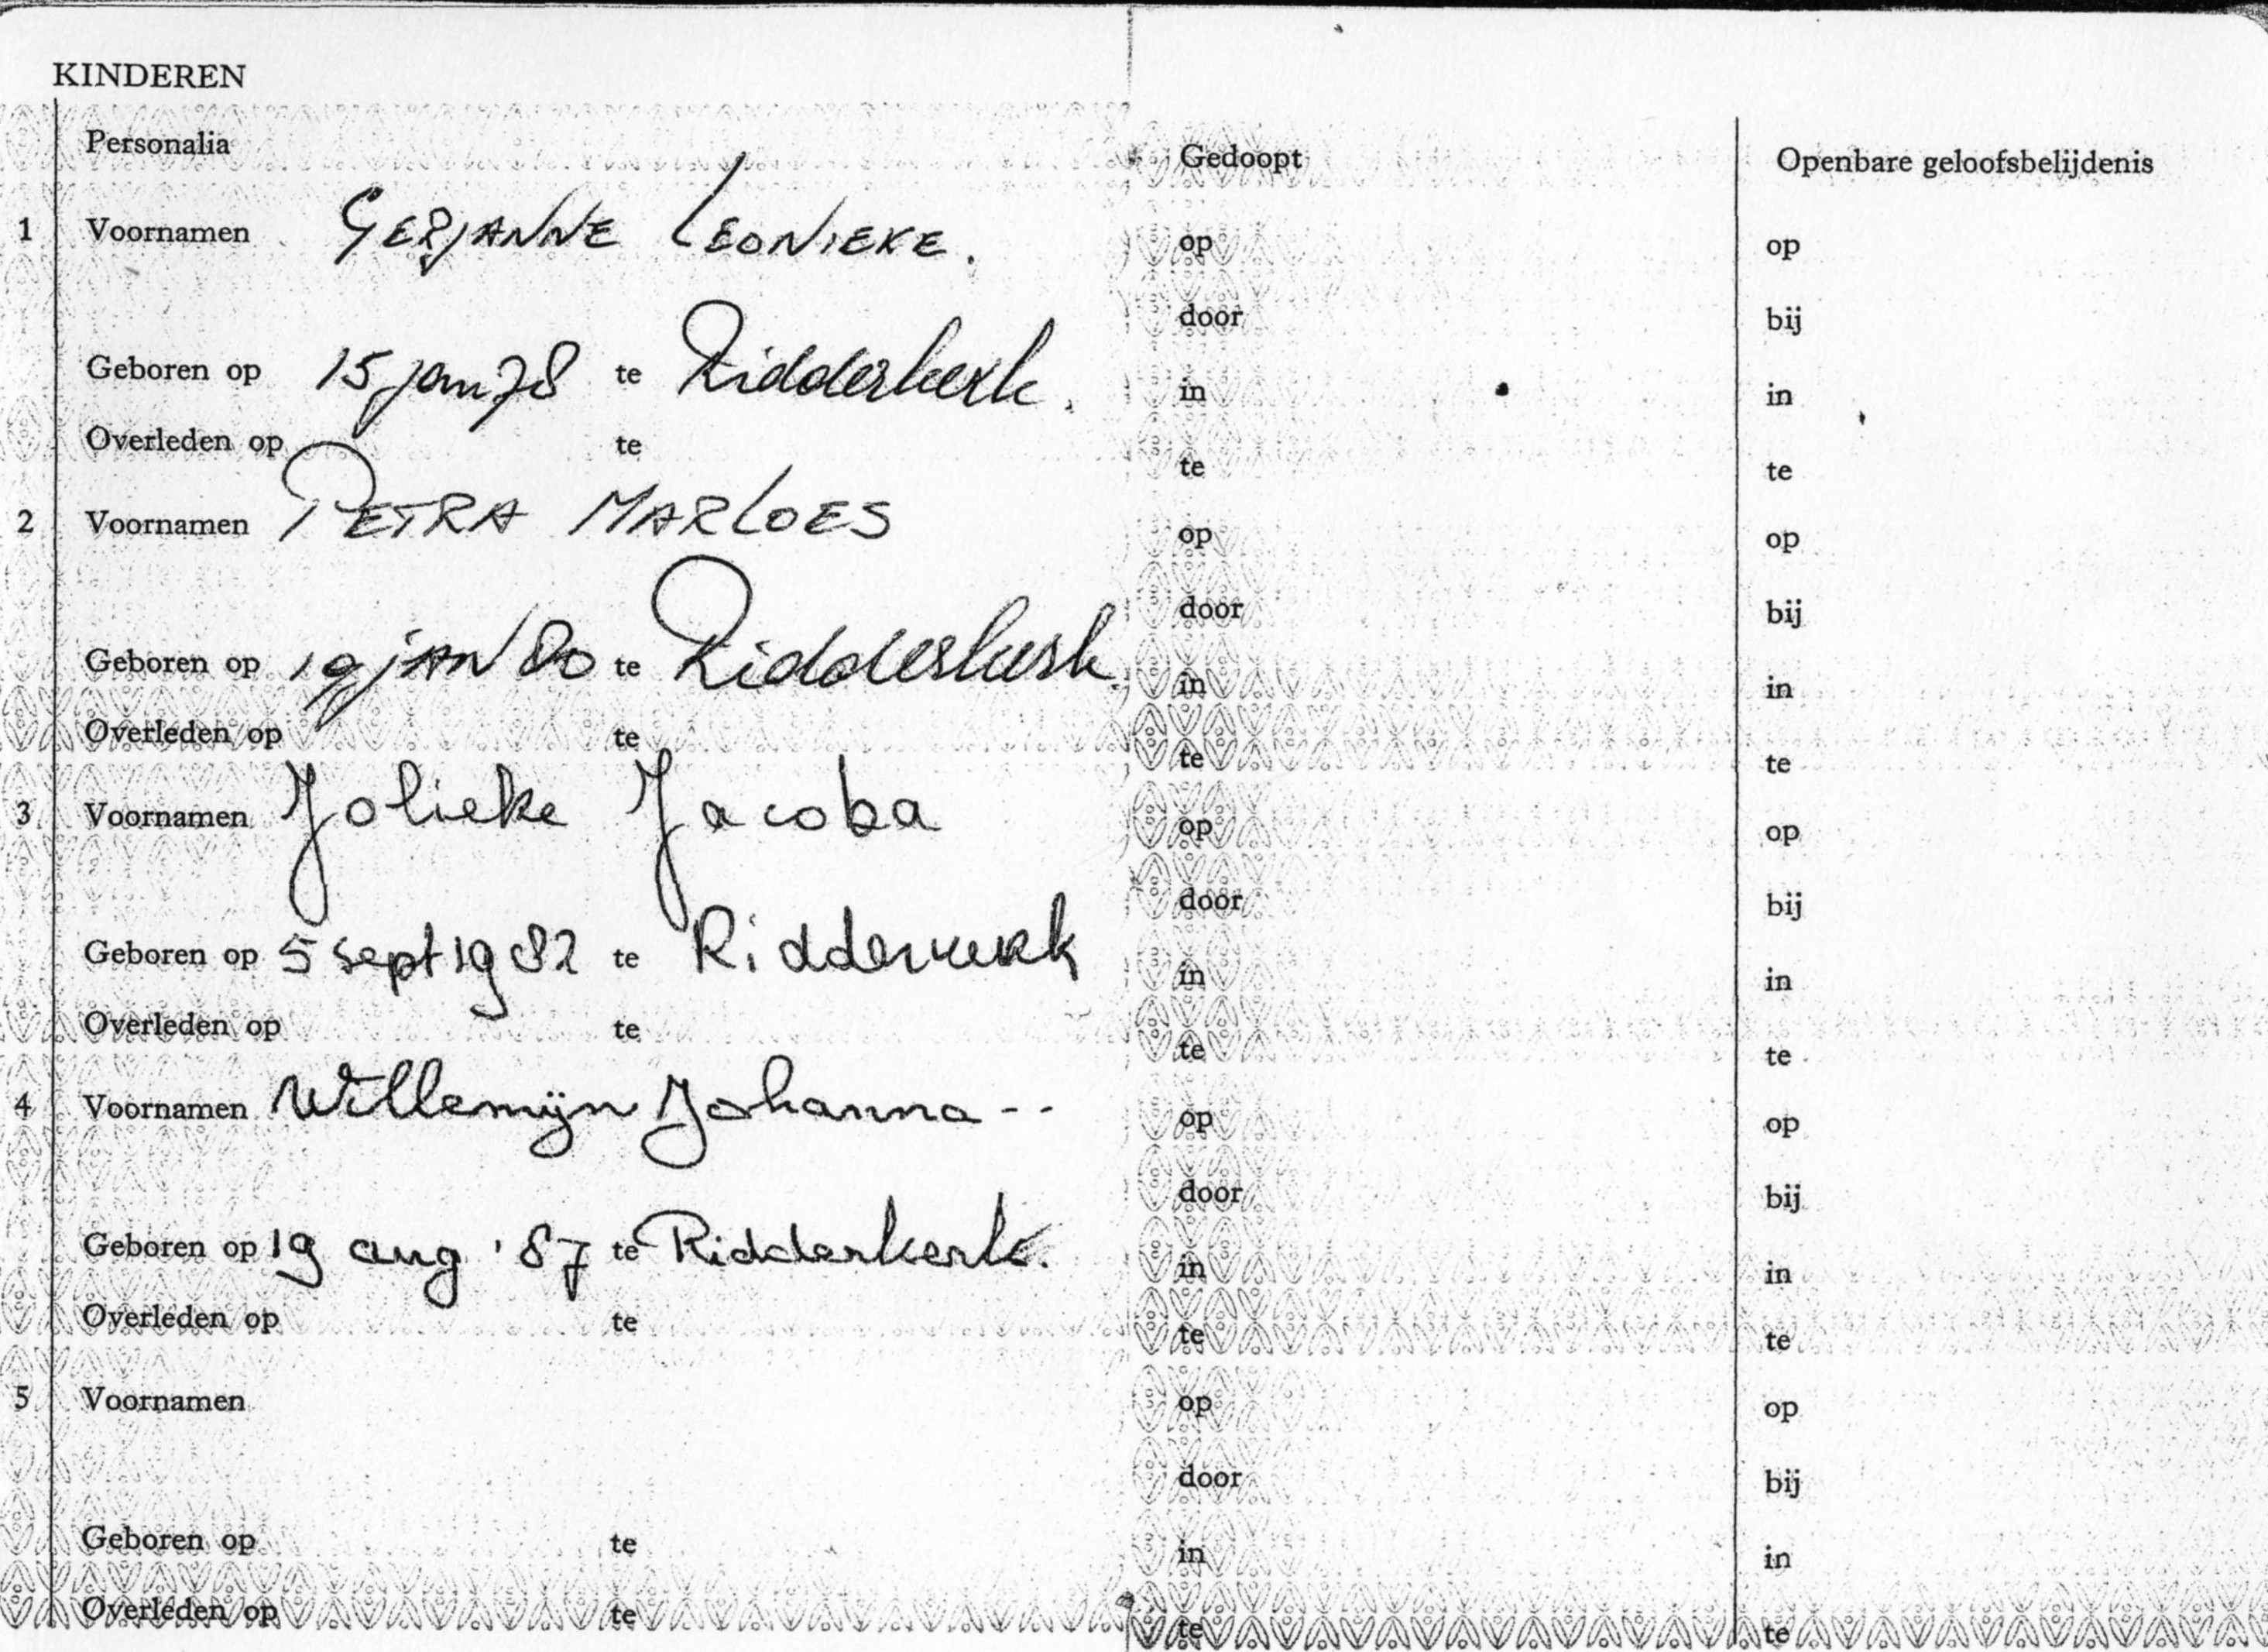 KINDEREN
Personalia Gedoopt Openbare geloofsbelijdenis
1 Voornamen GERJANNE LEONIEKE. op op
door bij
Geboren op 15 jan 78 te Ridderkerk. in in
Overleden op te te te
2 Voornamen PETRA MARLOES op op
door bij
Geboren op 19 JAN 80 te Ridderkerk. in in
Overleden op te te te
3 Voornamen Jolieke Jacoba op op
door bij
Geboren op 5 sept 1982 te Ridderkerk in in
Overleden op te te te
4 Voornamen Willemijn Johanna -- op op
door bij
Geboren op 19 aug '87 te Ridderkerk. in in
Overleden op te te te
5 Voornamen op op
door bij
Geboren op te in in
Overleden op te te te